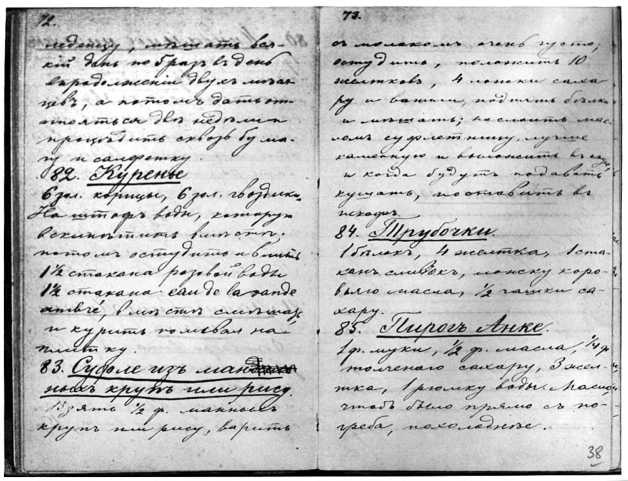 72.
леденцу, мѣшать вся-
кій день по 6 разъ въ день
въ продолженіи двухъ мѣся-
цевъ, а потомъ дать от-
стояться двѣ недѣли и
процѣдить сквозь бума-
гу и салфетку.
82. Куренье
6 зол. корицы, 6 зол. гвоздики.
На штофъ воды, которую
вскипятить вмѣстѣ,
потомъ остудить и влить
1½ стакана розовой воды
1½ стакана eau de lavande
ambré, вмѣстѣ смѣшать
и курить поливая на
плитку.
83. Суфле изъ ман
ныхъ крупъ или рису.
Взять ½ ф. манныхъ
крупъ или рису, варить
73.
съ молокомъ очень густо,
остудить, положить 10
желтковъ, 4 ложки саха-
ру и ванили, подтять бѣлки
и мѣшать; намазать мас-
ломъ суфлетницу, лучше
каменную и выложить въ нее,
и когда будутъ подавать
кушать, поставить въ
шкафъ.
84. Трубочки.
1 бѣлокъ, 4 желтка, 1 ста-
канъ сливокъ, ложку коро-
вьяго масла, ½ чашки са-
хару.
85. Пирогъ Анке.
1 ф. муки, ½ ф. масла, ¼ ф.
толченаго сахару, 3 жел-
тка, 1 рюмку воды. Масло,
чтобъ было прямо съ по-
греба, похолоднѣе.
38